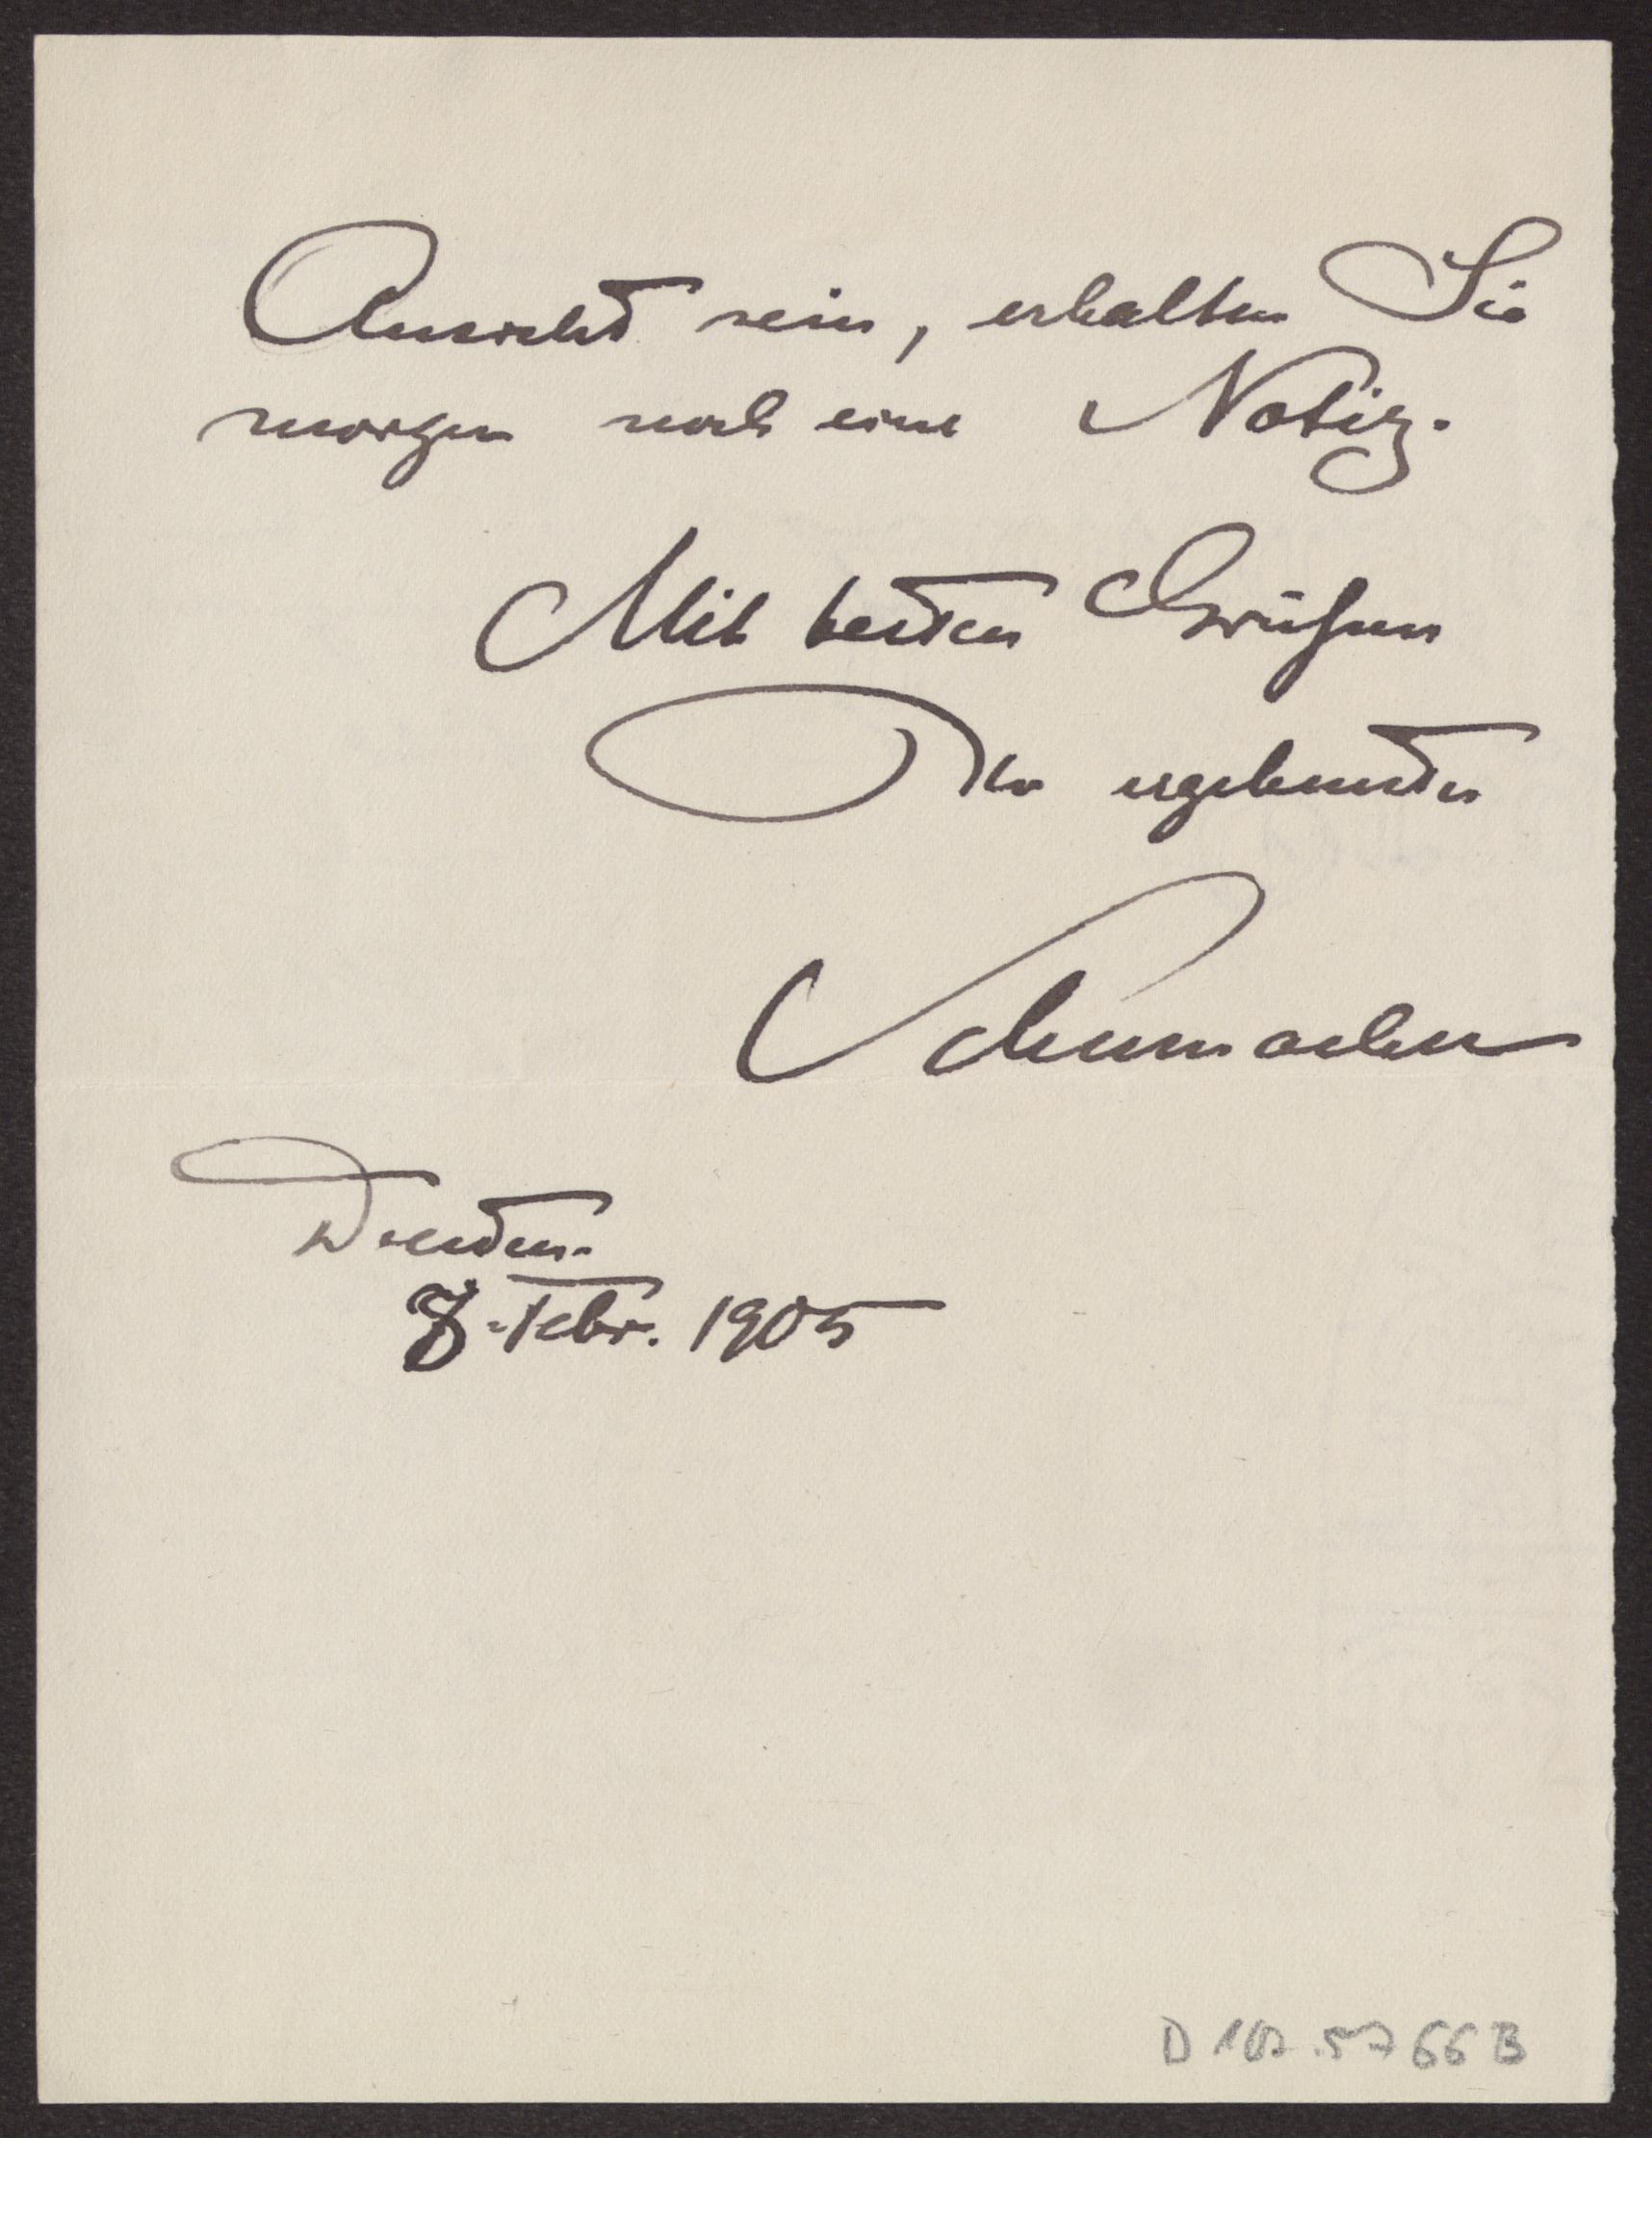 Ansicht sein, erhalten Sie
morgen noch eine Notiz.
Mit besten Grüßen
Ihr ergebenster
Schumacher
Dresden.
8. Febr. 1905
D 107.5766 B